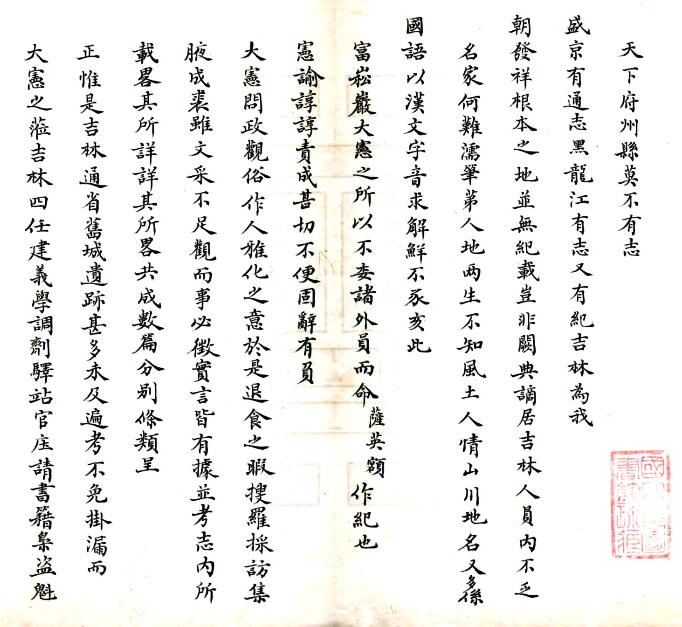 天下府州縣莫不有志
盛京有通志黑龍江有志又有紀吉林為我
朝發祥根本之地並無紀載豈非闕典謫居吉林人員內不乏
名家何難濡筆第人地两生不知風土人情山川地名又多係
國語以漢文字音求解鮮不豕亥此
富崧巖大憲之所以不委諸外員而命薩英額作紀也
憲諭諄諄責成甚切不便固辭有負
大憲問政觀俗作人雅化之意於是退食之暇搜羅採訪集
腋成裘雖文采不足觀而事必徵實言皆有據並考志內所
載畧其所詳詳其所畧共成數篇分別條類呈
正惟是吉林通省舊城遺跡甚多未及遍考不免掛漏而
大憲之蒞吉林四任建義學調劑驛站官庄請書籍梟盜魁